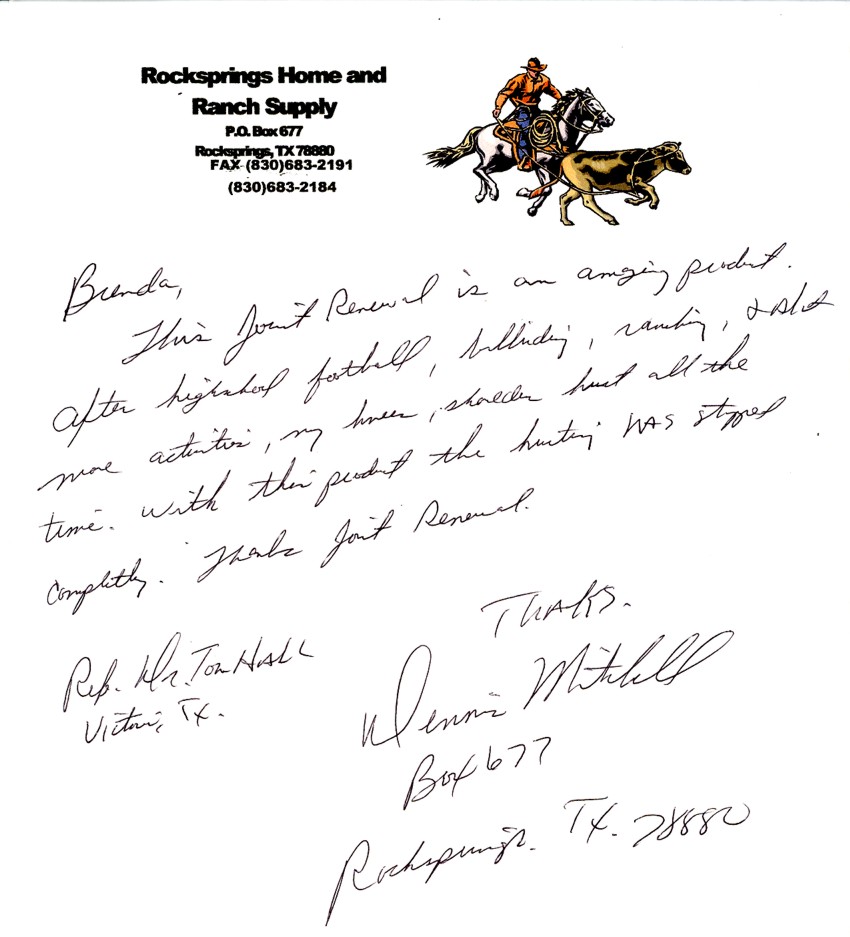 Rocksprings Home and
Ranch Supply
P.O. Box 677
Rocksprings, TX 78880
FAX (830)683-2191
(830)683-2184
Brenda,
This Joint Renewal is an amazing product.
After highschool football, bullriding, ranching, & alot
more activities, my knees, shoulder hurt all the
time. With this product the hurting HAS stopped
Completly. Thanks Joint Renewal.
THAKS.
Rep. Dr. Tom Hall
Victoria, TX.
Dennis Mitchell
Box 677
Rocksprings. TX. 78880